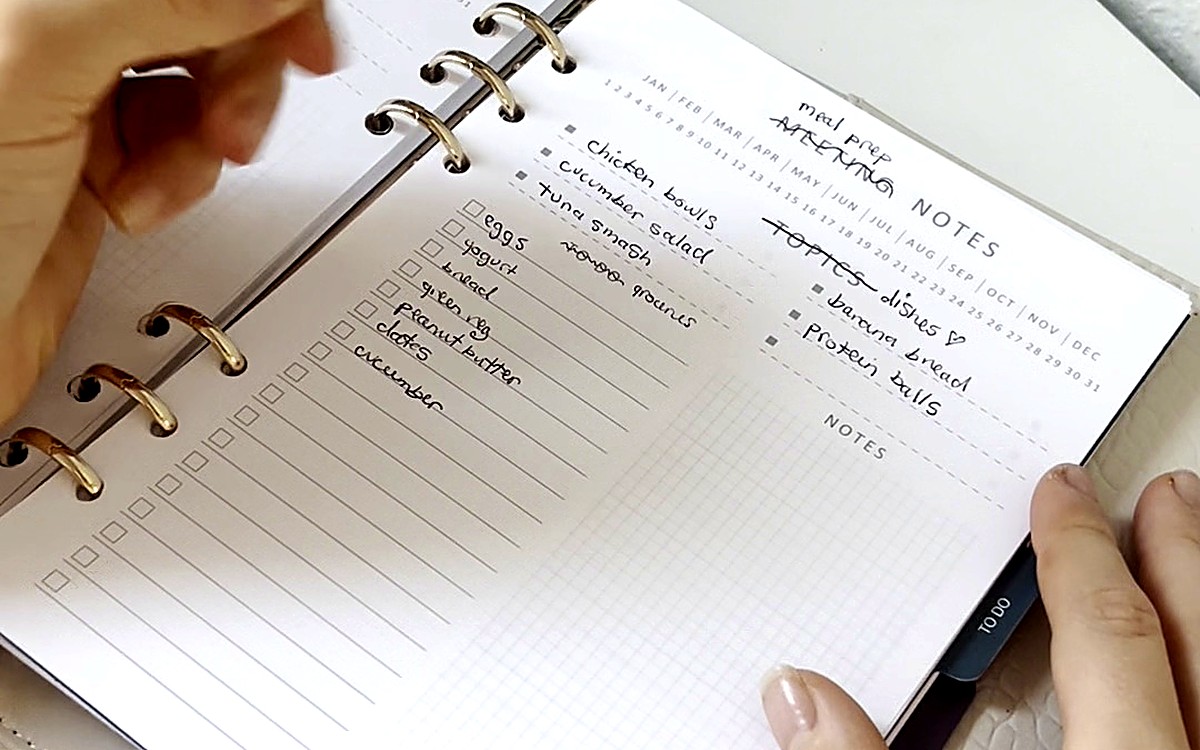 meal prep
MEETING NOTES
JAN | FEB | MAR | APR | MAY | JUN | JUL | AUG | SEP | OCT | NOV | DEC
1 2 3 4 5 6 7 8 9 10 11 12 13 14 15 16 17 18 19 20 21 22 23 24 25 26 27 28 29 30 31
TOPICS dishes ♡
chicken bowls
cucumber salad
tuna smash
banana bread
protein balls
eggs
yogurt
bread
green veg
peanut butter
dates
cucumber
NOTES
TO DO